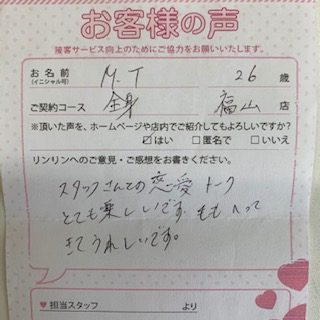 お客様の声
接客サービス向上のためにご協力をお願いいたします。
お名前 (イニシャル可) M.T 26 歳
ご契約コース 全身 福山 店
※頂いた声を、ホームページや店内でご紹介してもよろしいですか?
☑はい □匿名で □いいえ
リンリンへのご意見・ご感想をお書きください。
スタッフさんとの恋愛トーク
とても楽しいです。毛もへって
きてうれしいです。
♥担当スタッフ より